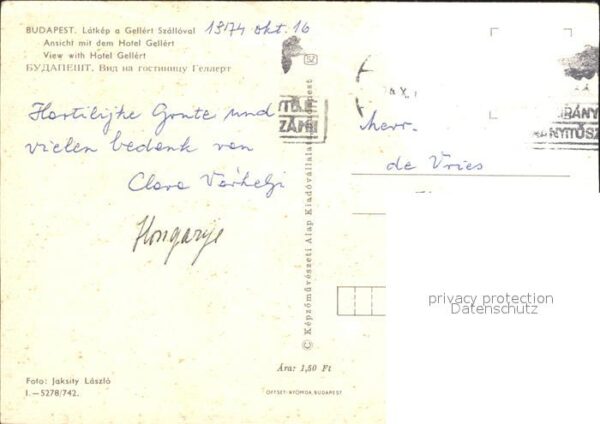 BUDAPEST. Látkép a Gellért Szállóval
Ansicht mit dem Hotel Gellért
View with Hotel Gellért
БУДАПЕШТ. Вид на гостиницу Геллерт
1974 okt. 16
Hartilijke Groute und
vielen bedank von
Clara Várhelyi
Hongarije
© Képzőművészeti Alap Kiadóvállalata, Budapest
Merr.
de Vries
IRÁNY
ANYÍTÓSZ
ZÁMI
privacy protection
Datenschutz
Ára: 1,50 Ft
Foto: Jaksity László
I.—5278/742.
OFFSET-NYOMDA, BUDAPEST